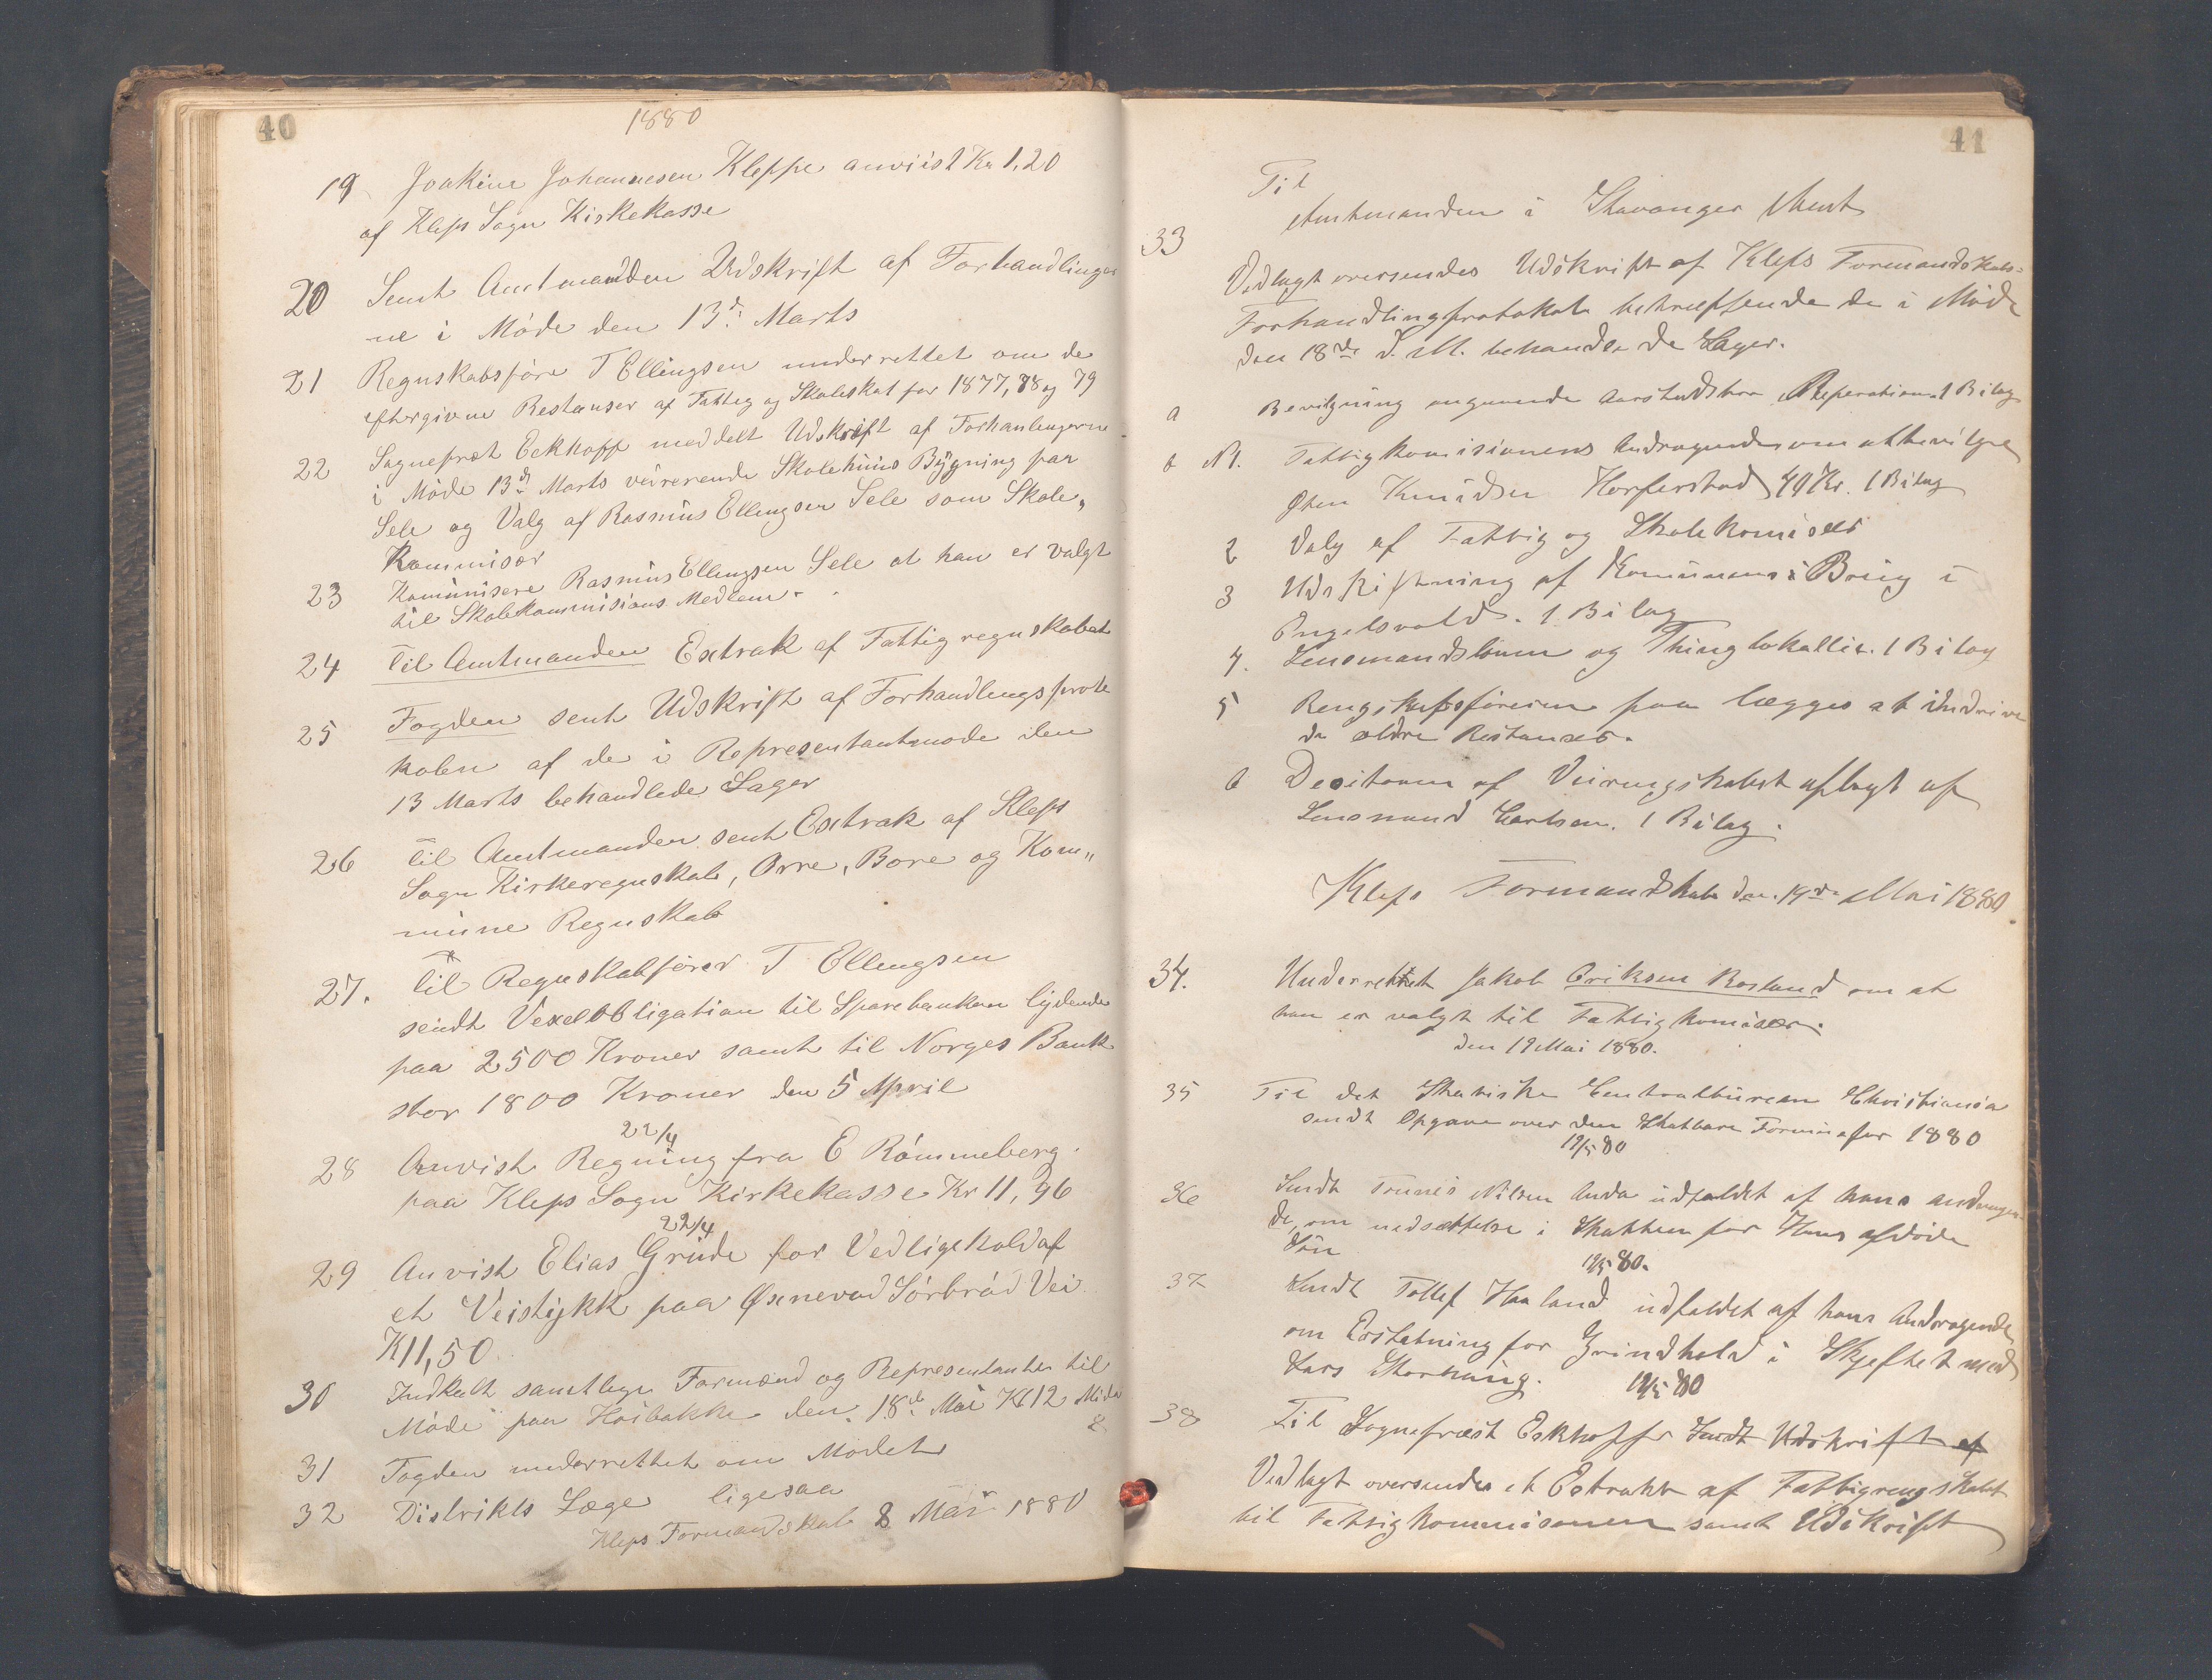 40
1880
19 Joakine Johannesen Kleppe anviist Kr 1,20
af Kleps Sogn Kirkekasse
20 Sendt Amtmanden Udskrift af Forhandlinger
ne i Møde den 13de Marts
21 Regnskabsføre T Ellingsen underrettet om de
eftergivne Restanser af Fattig og Skoleskat for 1877, 78 og 79
22 Sognepræst Eckhoff meddelt Udskrift af Forhanlingerne
i Møde 13de Marts vedrørende Skolehuus Bygning paa
Sele og Valg af Rasmus Ellingsen Sele som Skole„
Kommisær
23 Kommisere Rasmus Ellingsen Sele at han er valgt
til Skolekommisions Medlem.
24 Til Amtmanden Extrak af Fattigregnskabet
25 Fogden sent Udskrift af Forhandlingsproto
kolen af de i Representantmøde den
13 Marts behandlede Sager
26 Til Amtmanden sent Extrak af Kleps
Sogn Kirkeregnskab, Orre, Bore og Kom„
mune Regnskab
27. Til Regnskabfører T Ellingsen
sendt Vexelobligation til Sparebanken lydende
paa 2500 Kroner samt til Norges Bank
stor 1800 Kroner den 5 April
22/4
28 Anvist Regning fra E Rømmeberg
paa Kleps Sogn Kirkekasse Kr 11,96
22/4
29 Anvist Elias Grude for Vedligehold af
et Veistykk paa Øxnevad Sørbrød Vei
K 11,50
30 Indkalt samtlige Formænd og Representanter til
Møde paa Høibakke den 18de Mai Kl 12 Mida
31 Fogden underrettet om Mødet
32 Distrikts Læge ligesaa
Kleps Formandskab 8 Mai 1880
41
Til
Amtmanden i Stavanger Amt
33
Vedlagt oversendes Udskrift af Kleps Formandskabs-
Forhandlingsprotokol betræffende de i Møde
den 18de d. M. behandlede Sager.
a Bevilgning angaaende Reperation. 1 Bilag
b Nt. Fattigkomisionens Andragende om at bevilges
Knudsen 40 Kr. 1 Bilag
2 Valg af Fattig og Skolekomisær
3 Udskiftning af Komunens Brug i
Engelsvold. 1 Bilag
4. Lensmandslønn og Thinglokalle. 1 Bilag
5 Rengskapsføreren paa lægges at inddrive
de ældre Restanser.
6 Desitoren af Veirengskabet aflagt af
Lensmand Carlsen. 1 Bilag.
Kleps Formandskab den 19de Mai 1880
34. Underrettet Jakob Eriksen Rosland om at
han er valgt til Fattigkomisær.
den 19 Mai 1880.
35 Til det Statiske Centralbüreau Christiania
sendt Opgave over den Skatbare Formue for 1880
19/5 80
36 Sendt Nilsen Anda udfaldet af hans andragen-
de, om nedsættelse i Skatten for Hans afdøde
Søn
19/5 80.
37 Sendt Tollef Haaland udfaldet af hans Andragende
om Erstatning for Grindhold i Skjeftet med
Lars Storhaug.
19/5 80
38 Til Sognepræst Eckhoff Sendt Udskrift af
Vedlagt oversendes et Extrakt af Fattigrengskabet
til Fattigkommisionen samt Udskrift